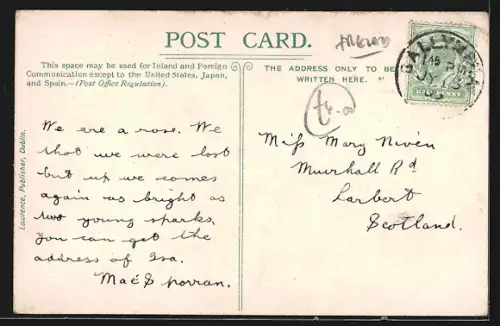 POST CARD.
This space may be used for Inland and Foreign
Communication except to the United States, Japan,
and Spain.—(Post Office Regulation).
THE ADDRESS ONLY TO BE
WRITTEN HERE.
Ireland
£4-00
BALLYM
45 P
Lawrence, Publisher, Dublin.
We are a rose. We
that we were lost
but up we comes
again as bright as
two young sparks.
You can get the
address of Isa.
Miss Mary Niven
Muirhall Rd
Larbert
Scotland.